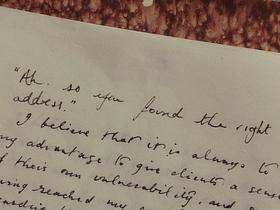 "Ah. so you found the right
address."
I believe that it is always to
my advantage to give clients a sense
of their own vulnerability, and
having reached my